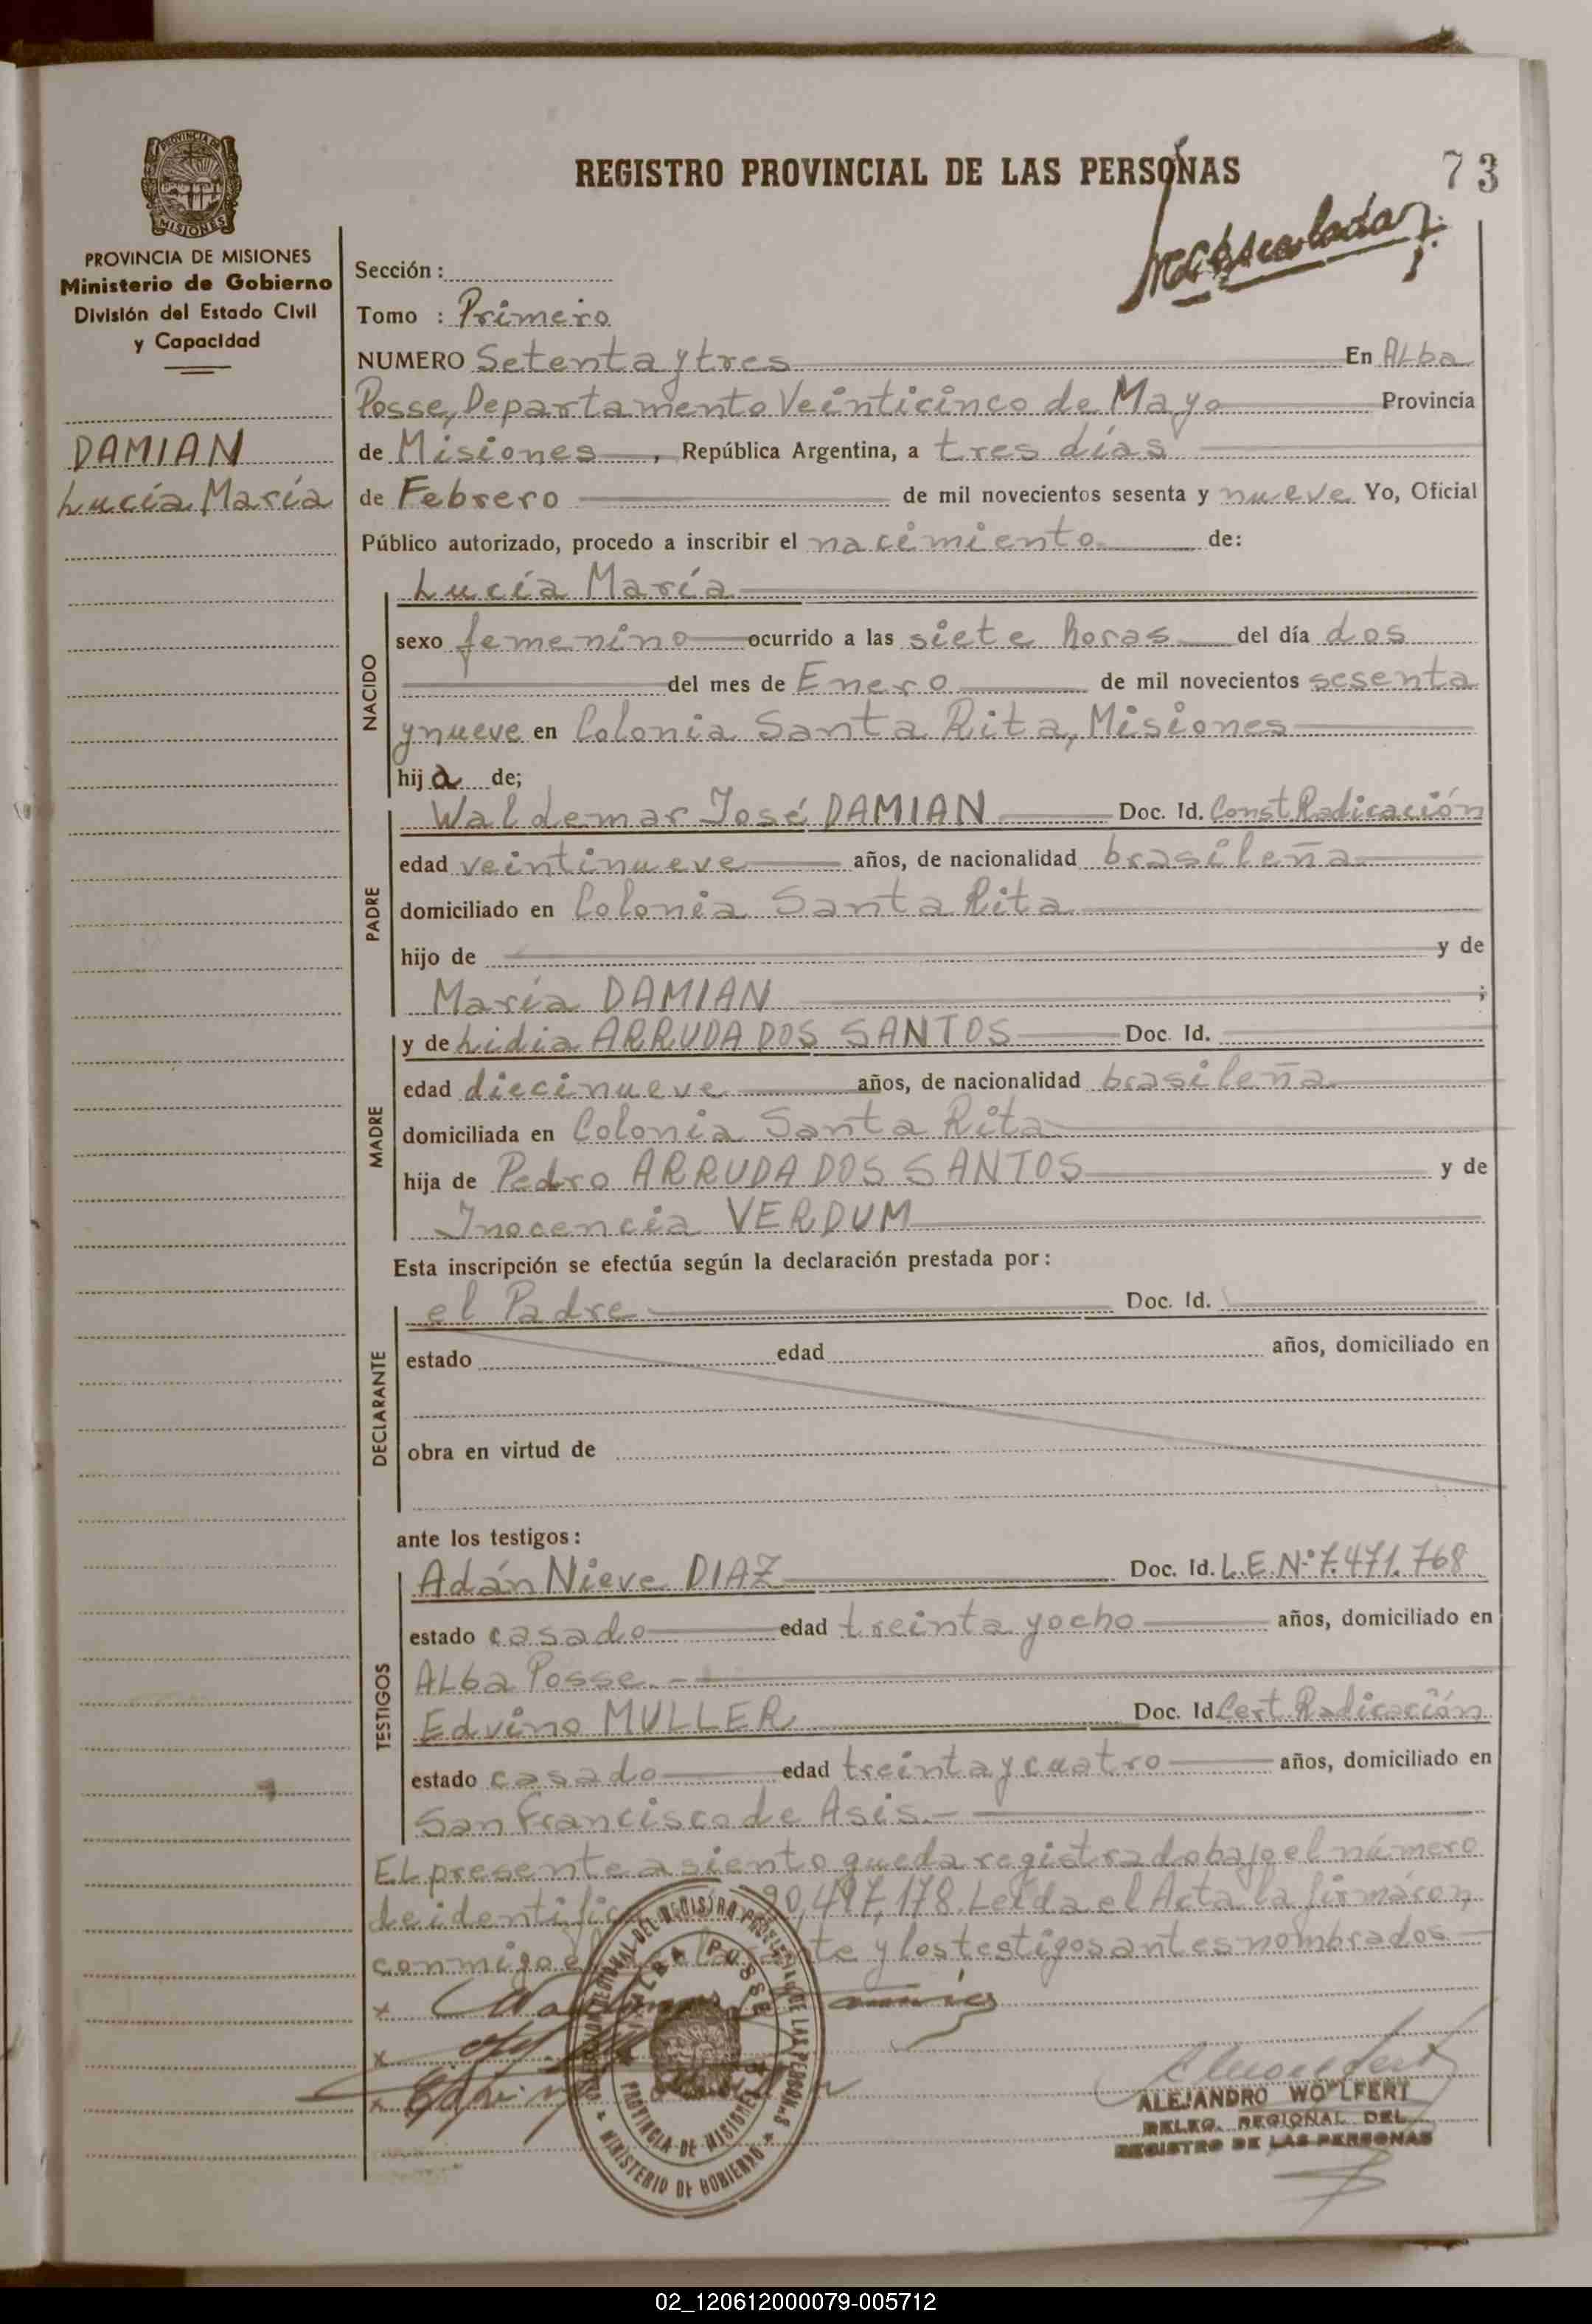 REGISTRO PROVINCIAL DE LAS PERSONAS
73
PROVINCIA DE
MISIONES
PROVINCIA DE MISIONES
Ministerio de Gobierno
División del Estado Civil
y Capacidad
DAMIAN
Lucía María
Sección :
Tomo : Primero
NUMERO Setenta y tres En Alba
Posse, Departamento Veinticinco de Mayo Provincia
de Misiones, República Argentina, a tres días
de Febrero de mil novecientos sesenta y nueve Yo, Oficial
Público autorizado, procedo a inscribir el nacimiento de:
NACIDO
Lucía María
sexo femenino ocurrido a las siete horas del día dos
del mes de Enero de mil novecientos sesenta
y nueve en Colonia Santa Rita, Misiones
hija de;
PADRE
Waldemar José DAMIAN Doc. Id. Const. Radicación
edad veintinueve años, de nacionalidad brasileña
domiciliado en Colonia Santa Rita
hijo de y de
María DAMIAN ;
MADRE
y de Lidia ARRUDA DOS SANTOS Doc. Id.
edad diecinueve años, de nacionalidad brasileña
domiciliada en Colonia Santa Rita
hija de Pedro ARRUDA DOS SANTOS y de
Inocencia VERDUM
Esta inscripción se efectúa según la declaración prestada por :
DECLARANTE
el Padre Doc. Id.
estado edad años, domiciliado en
obra en virtud de
ante los testigos :
TESTIGOS
Adán Nieve DIAZ Doc. Id. L.E.Nº 7.471.768
estado casado edad treinta y ocho años, domiciliado en
Alba Posse.-
Edvino MULLER Doc. Id. Cert. Radicación
estado casado edad treinta y cuatro años, domiciliado en
San Francisco de Asis.-
El presente asiento queda registrado bajo el número
de identific 20,487,178. Leída el Acta la firmaron,
conmigo el te y los testigos antes nombrados
ALBA POSSE
PROVINCIA DE MISIONES
MINISTERIO DE GOBIERNO
ALEJANDRO WOLFERT
DELEG. REGIONAL DEL
REGISTRO DE LAS PERSONAS
02_120612000079-005712